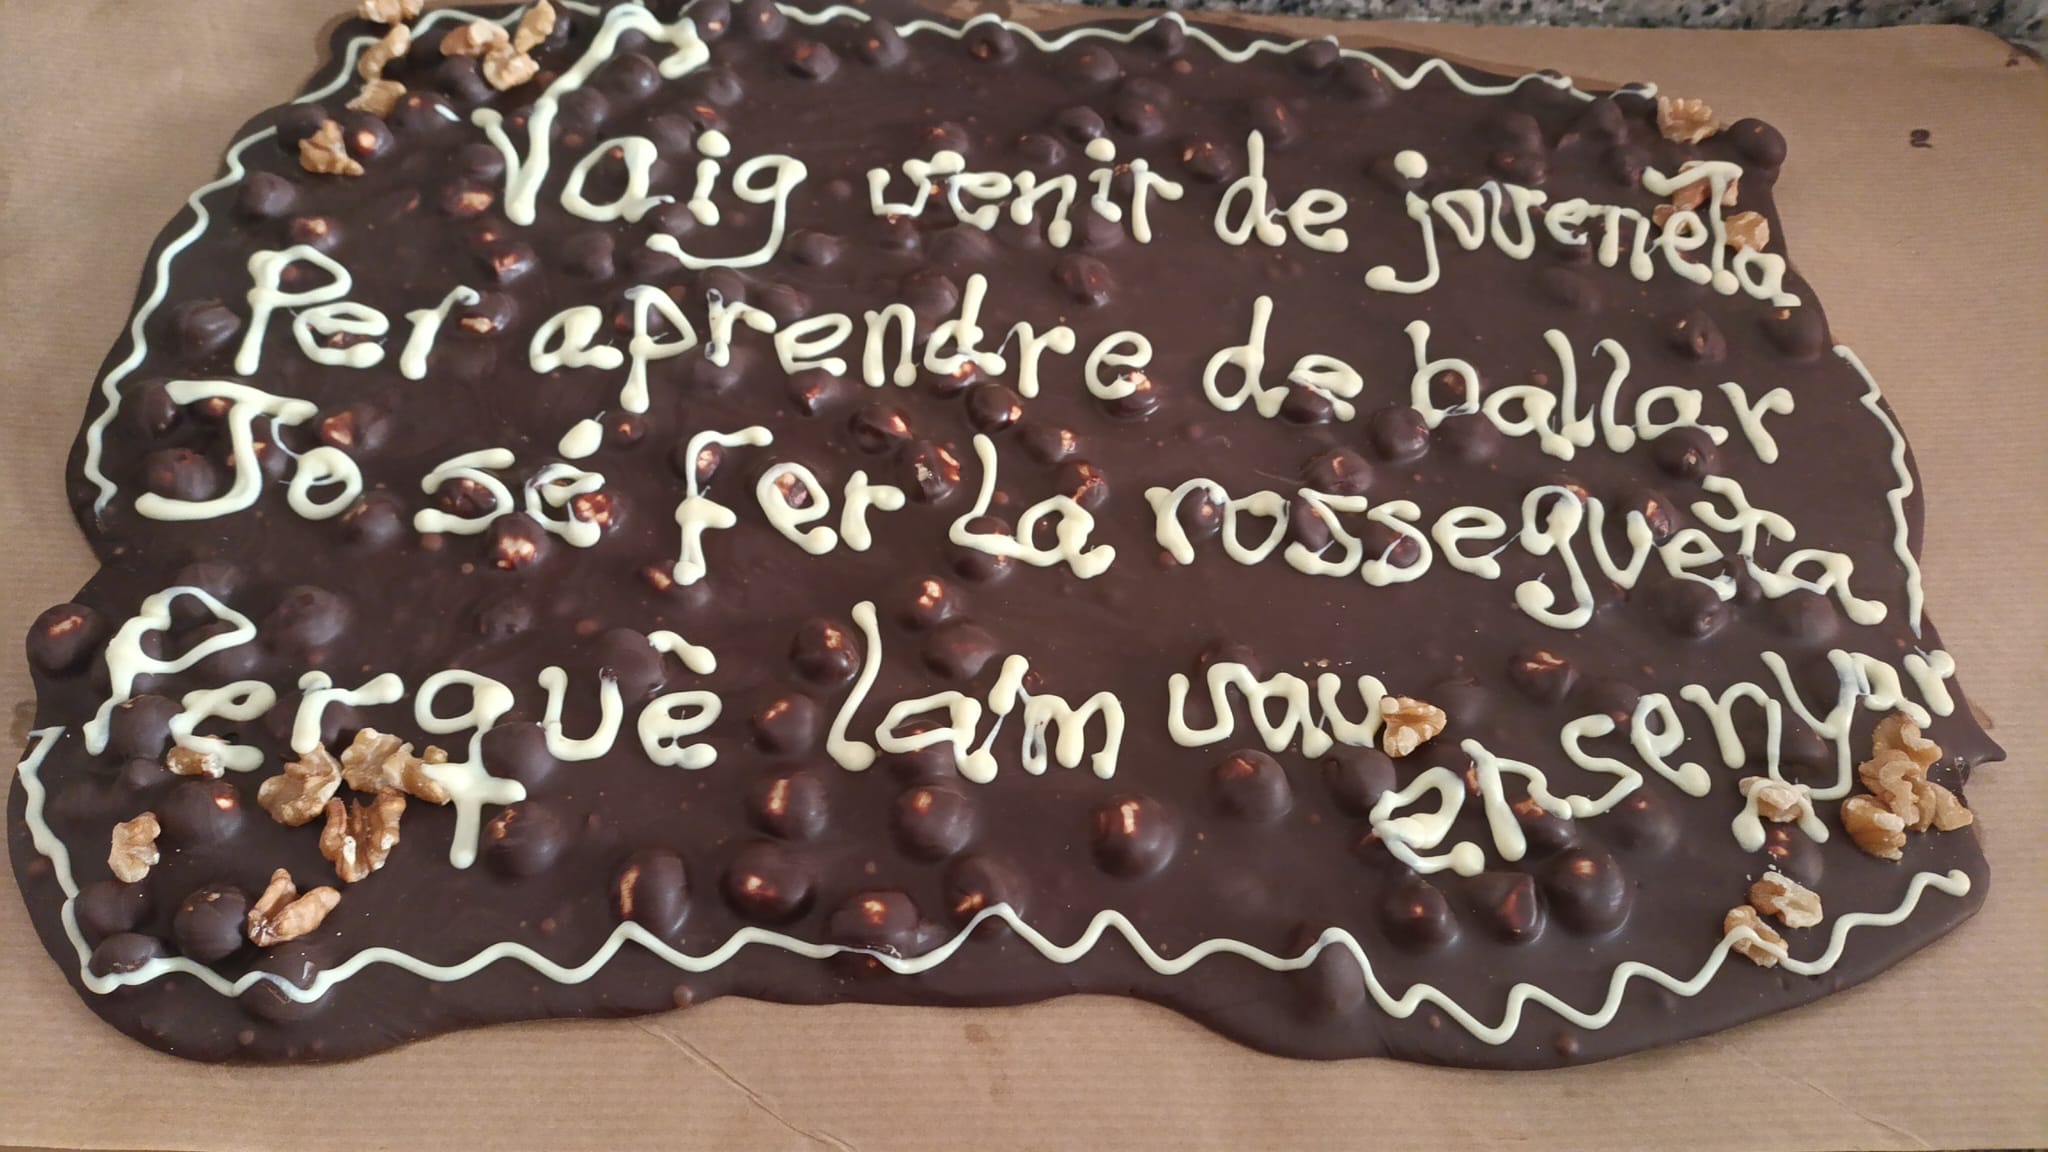 Vaig venir de joveneta
Per aprendre de ballar
Jo sé fer La rossegueta
Perquè la'm vau ensenyar